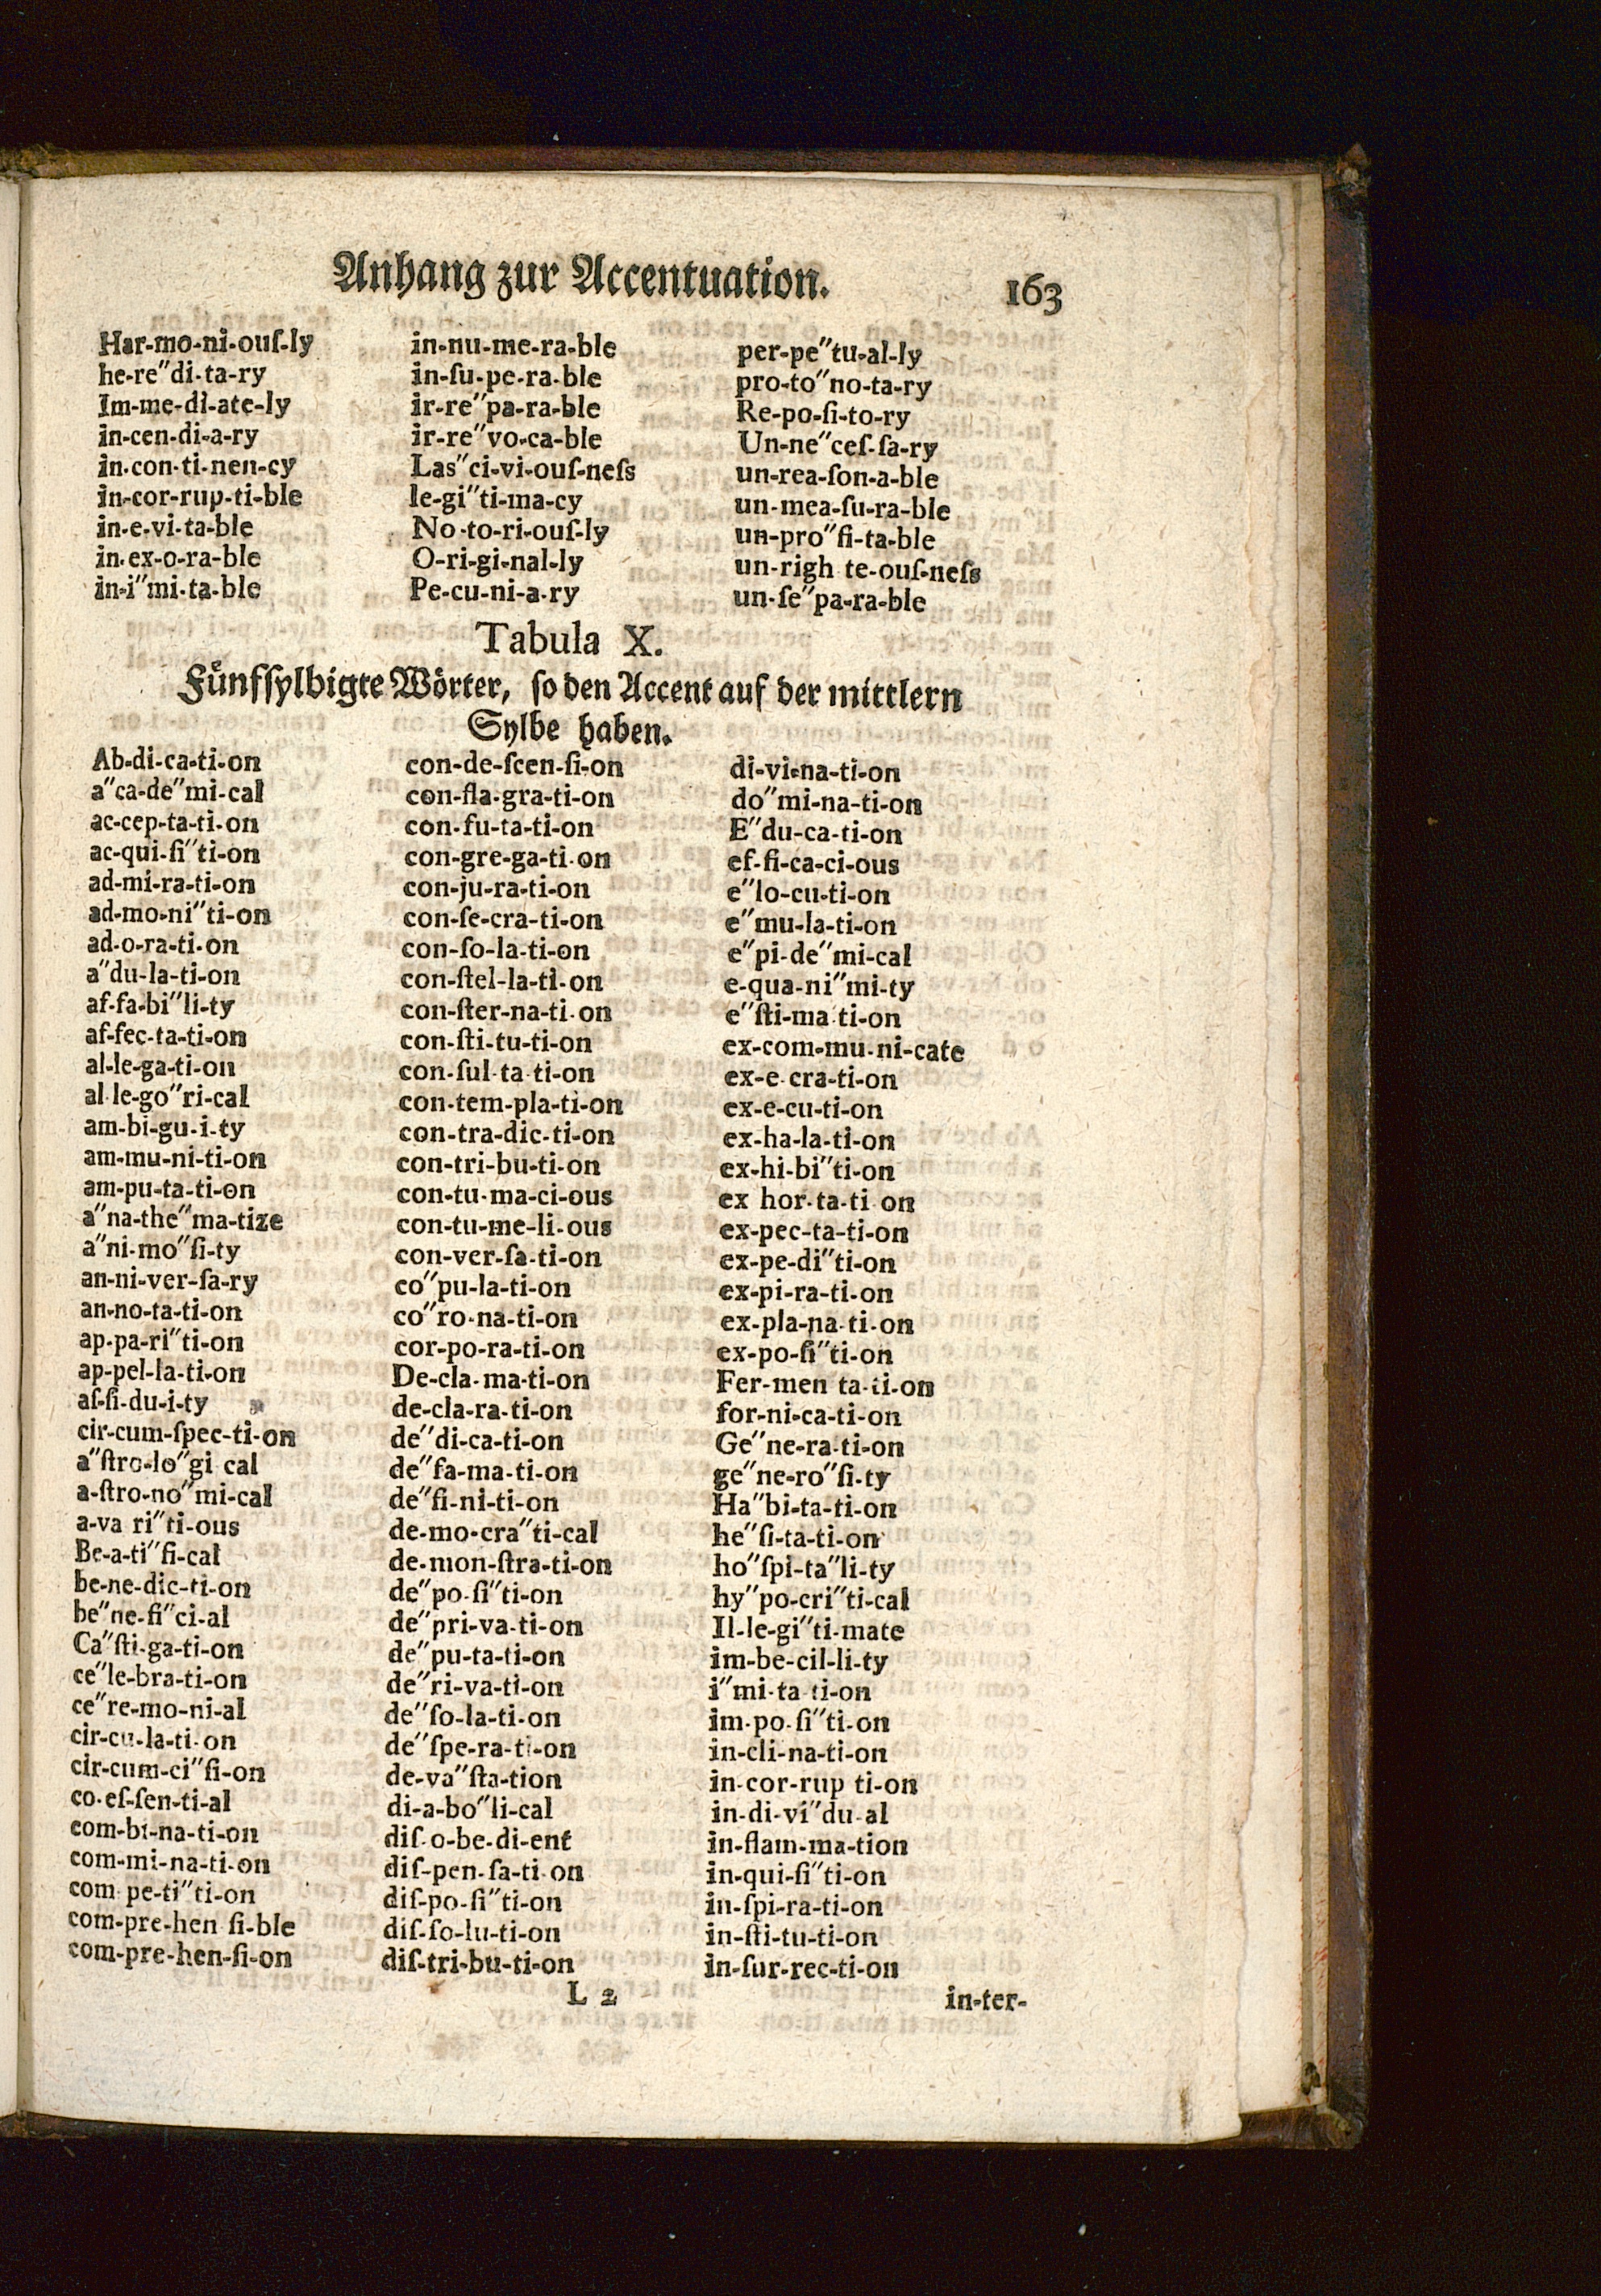 Anhang zur Accentuation. 163
Har-mo-ni-ouſ-ly
he-re"di-ta-ry
Im-me-di-ate-ly
in-cen-di-a-ry
in-con-ti-nen-cy
in-cor-rup-ti-ble
in-e-vi-ta-ble
in-ex-o-ra-ble
in-i"mi-ta-ble
in-nu-me-ra-ble
in-ſu-pe-ra-ble
ir-re"pa-ra-ble
ir-re"vo-ca-ble
Las"ci-vi-ouſ-neſs
le-gi"ti-ma-cy
No-to-ri-ouſ-ly
O-ri-gi-nal-ly
Pe-cu-ni-a-ry
per-pe"tu-al-ly
pro-to"no-ta-ry
Re-po-ſi-to-ry
Un-ne"ceſ-ſa-ry
un-rea-ſon-a-ble
un-mea-ſu-ra-ble
un-pro"fi-ta-ble
un-righ te-ouſ-neſs
un-ſe"pa-ra-ble
Tabula X.
Fünfſylbigte Wörter, ſo den Accent auf der mittlern
Sylbe haben.
Ab-di-ca-ti-on
a"ca-de"mi-cal
ac-cep-ta-ti-on
ac-qui-ſi"ti-on
ad-mi-ra-ti-on
ad-mo-ni"ti-on
ad-o-ra-ti-on
a"du-la-ti-on
af-fa-bi"li-ty
af-fec-ta-ti-on
al-le-ga-ti-on
al-le-go"ri-cal
am-bi-gu-i-ty
am-mu-ni-ti-on
am-pu-ta-ti-on
a"na-the"ma-tize
a"ni-mo"ſi-ty
an-ni-ver-ſa-ry
an-no-ta-ti-on
ap-pa-ri"ti-on
ap-pel-la-ti-on
aſ-ſi-du-i-ty
cir-cum-ſpec-ti-on
a"ſtro-lo"gi cal
a-ſtro-no"mi-cal
a-va ri"ti-ous
Be-a-ti"fi-cal
be-ne-dic-ti-on
be"ne-fi"ci-al
Ca"ſti-ga-ti-on
ce"le-bra-ti-on
ce"re-mo-ni-al
cir-cu-la-ti-on
cir-cum-ci"ſi-on
co-eſ-ſen-ti-al
com-bi-na-ti-on
com-mi-na-ti-on
com pe-ti"ti-on
com-pre-hen ſi-ble
com-pre-hen-ſi-on
con-de-ſcen-ſi-on
con-fla-gra-ti-on
con-fu-ta-ti-on
con-gre-ga-ti-on
con-ju-ra-ti-on
con-ſe-cra-ti-on
con-ſo-la-ti-on
con-ſtel-la-ti-on
con-ſter-na-ti-on
con-ſti-tu-ti-on
con-ſul-ta ti-on
con-tem-pla-ti-on
con-tra-dic-ti-on
con-tri-bu-ti-on
con-tu-ma-ci-ous
con-tu-me-li-ous
con-ver-ſa-ti-on
co"pu-la-ti-on
co"ro-na-ti-on
cor-po-ra-ti-on
De-cla-ma-ti-on
de-cla-ra-ti-on
de"di-ca-ti-on
de"fa-ma-ti-on
de"fi-ni-ti-on
de-mo-cra"ti-cal
de-mon-ſtra-ti-on
de"po-ſi"ti-on
de"pri-va-ti-on
de"pu-ta-ti-on
de"ri-va-ti-on
de"ſo-la-ti-on
de"ſpe-ra-ti-on
de-va"ſta-tion
di-a-bo"li-cal
diſ-o-be-di-ent
diſ-pen-ſa-ti on
diſ-po-ſi"ti-on
diſ-ſo-lu-ti-on
diſ-tri-bu-ti-on
di-vi-na-ti-on
do"mi-na-ti-on
E"du-ca-ti-on
ef-fi-ca-ci-ous
e"lo-cu-ti-on
e"mu-la-ti-on
e"pi-de"mi-cal
e-qua-ni"mi-ty
e"ſti-ma ti-on
ex-com-mu-ni-cate
ex-e-cra-ti-on
ex-e-cu-ti-on
ex-ha-la-ti-on
ex-hi-bi"ti-on
ex hor-ta-ti on
ex-pec-ta-ti-on
ex-pe-di"ti-on
ex-pi-ra-ti-on
ex-pla-na-ti-on
ex-po-ſi"ti-on
Fer-men ta-ti-on
for-ni-ca-ti-on
Ge"ne-ra-ti-on
ge"ne-ro"ſi-ty
Ha"bi-ta-ti-on
he"ſi-ta-ti-on
ho"ſpi-ta"li-ty
hy"po-cri"ti-cal
Il-le-gi"ti-mate
im-be-cil-li-ty
i"mi-ta ti-on
im-po-ſi"ti-on
in-cli-na-ti-on
in-cor-rup ti-on
in-di-vi"du-al
in-flam-ma-tion
in-qui-ſi"ti-on
in-ſpi-ra-ti-on
in-ſti-tu-ti-on
in-ſur-rec-ti-on
L 2 in-ter-